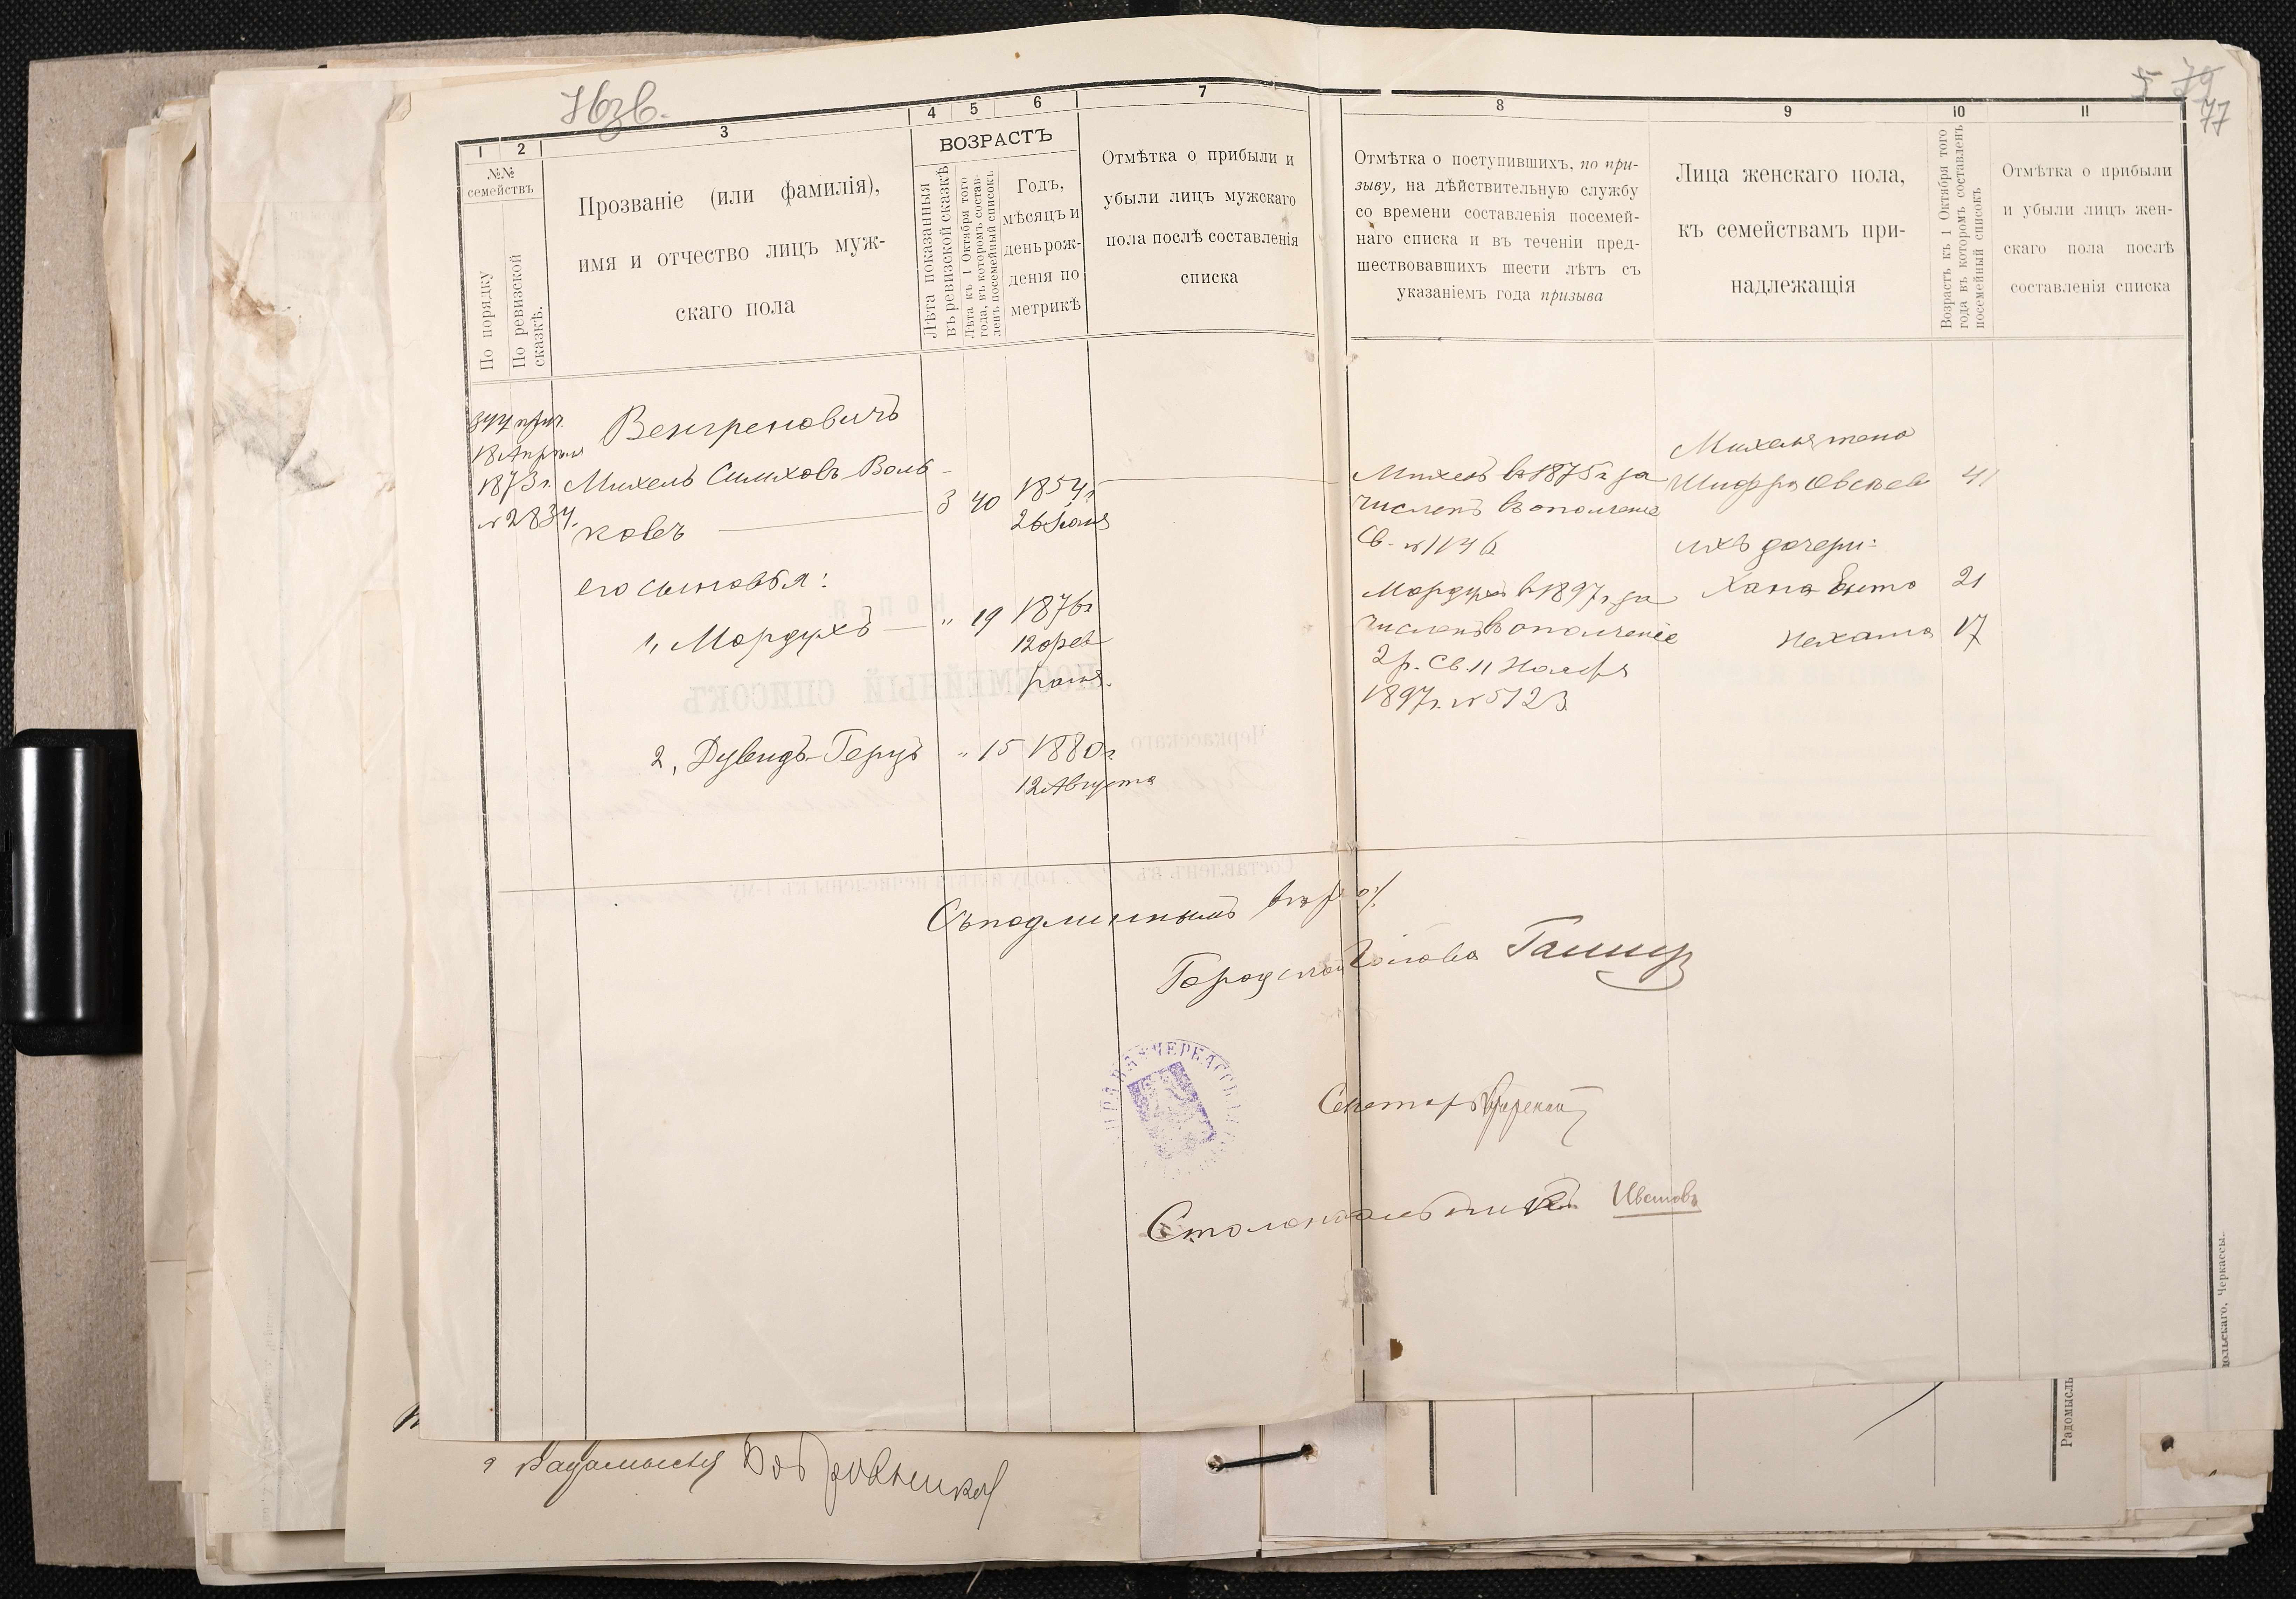 79
77
1
2
3
4
5
6
7
8
9
10
11
№№
семействъ
По порядку
По ревизской
сказкѣ.
Прозваніе (или фамилія),
имя и отчество лицъ муж-
скаго пола
ВОЗРАСТЪ
Лѣта показанныя
въ ревизской сказкѣ
Лѣта къ 1 Октября того
года, въ которомъ состав-
ленъ посемейный списокъ
Годъ,
мѣсяцъ и
день рож-
денія по
метрикѣ
Отмѣтка о прибыли и
убыли лицъ мужскаго
пола послѣ составленія
списка
Отмѣтка о поступившихъ, по при-
зыву, на дѣйствительную службу
со времени составленія посемей-
наго списка и въ теченіи пред-
шествовавшихъ шести лѣтъ съ
указаніемъ года призыва
Лица женскаго пола,
къ семействамъ при-
надлежащія
Возрастъ къ 1 Октября того
года въ которомъ составленъ
посемейный списокъ
Отмѣтка о прибыли
и убыли лицъ жен-
скаго пола послѣ
составленія списка
18 Апрѣля
1873г.
№ 2834.
Венгреновичъ
Михель Симховъ-Воль-
ковъ
3
40
1854г.
26 Іюня
его сыновья:
1, Мордухъ
"
19
1876г
12 фев
раля.
2, Дувидъ-Герцъ
"
15
1880г.
12 Августа
Михель въ 1875г за
численъ въ ополченіе
Св. № 1146
Мордухъ въ 1897г. за
численъ въ ополченіе
2 р. Св. 11 Ноября
1897г. № 5123.
Михеля жена
Шифра Овсѣев
41
ихъ дочери:
Хана Енто
21
Нехама
17
Съ подлиннымъ вѣрно:
Городской Голова
Секретарь
Столоначальникъ
ЧЕРКАССК
Черкассы.
Радомысль